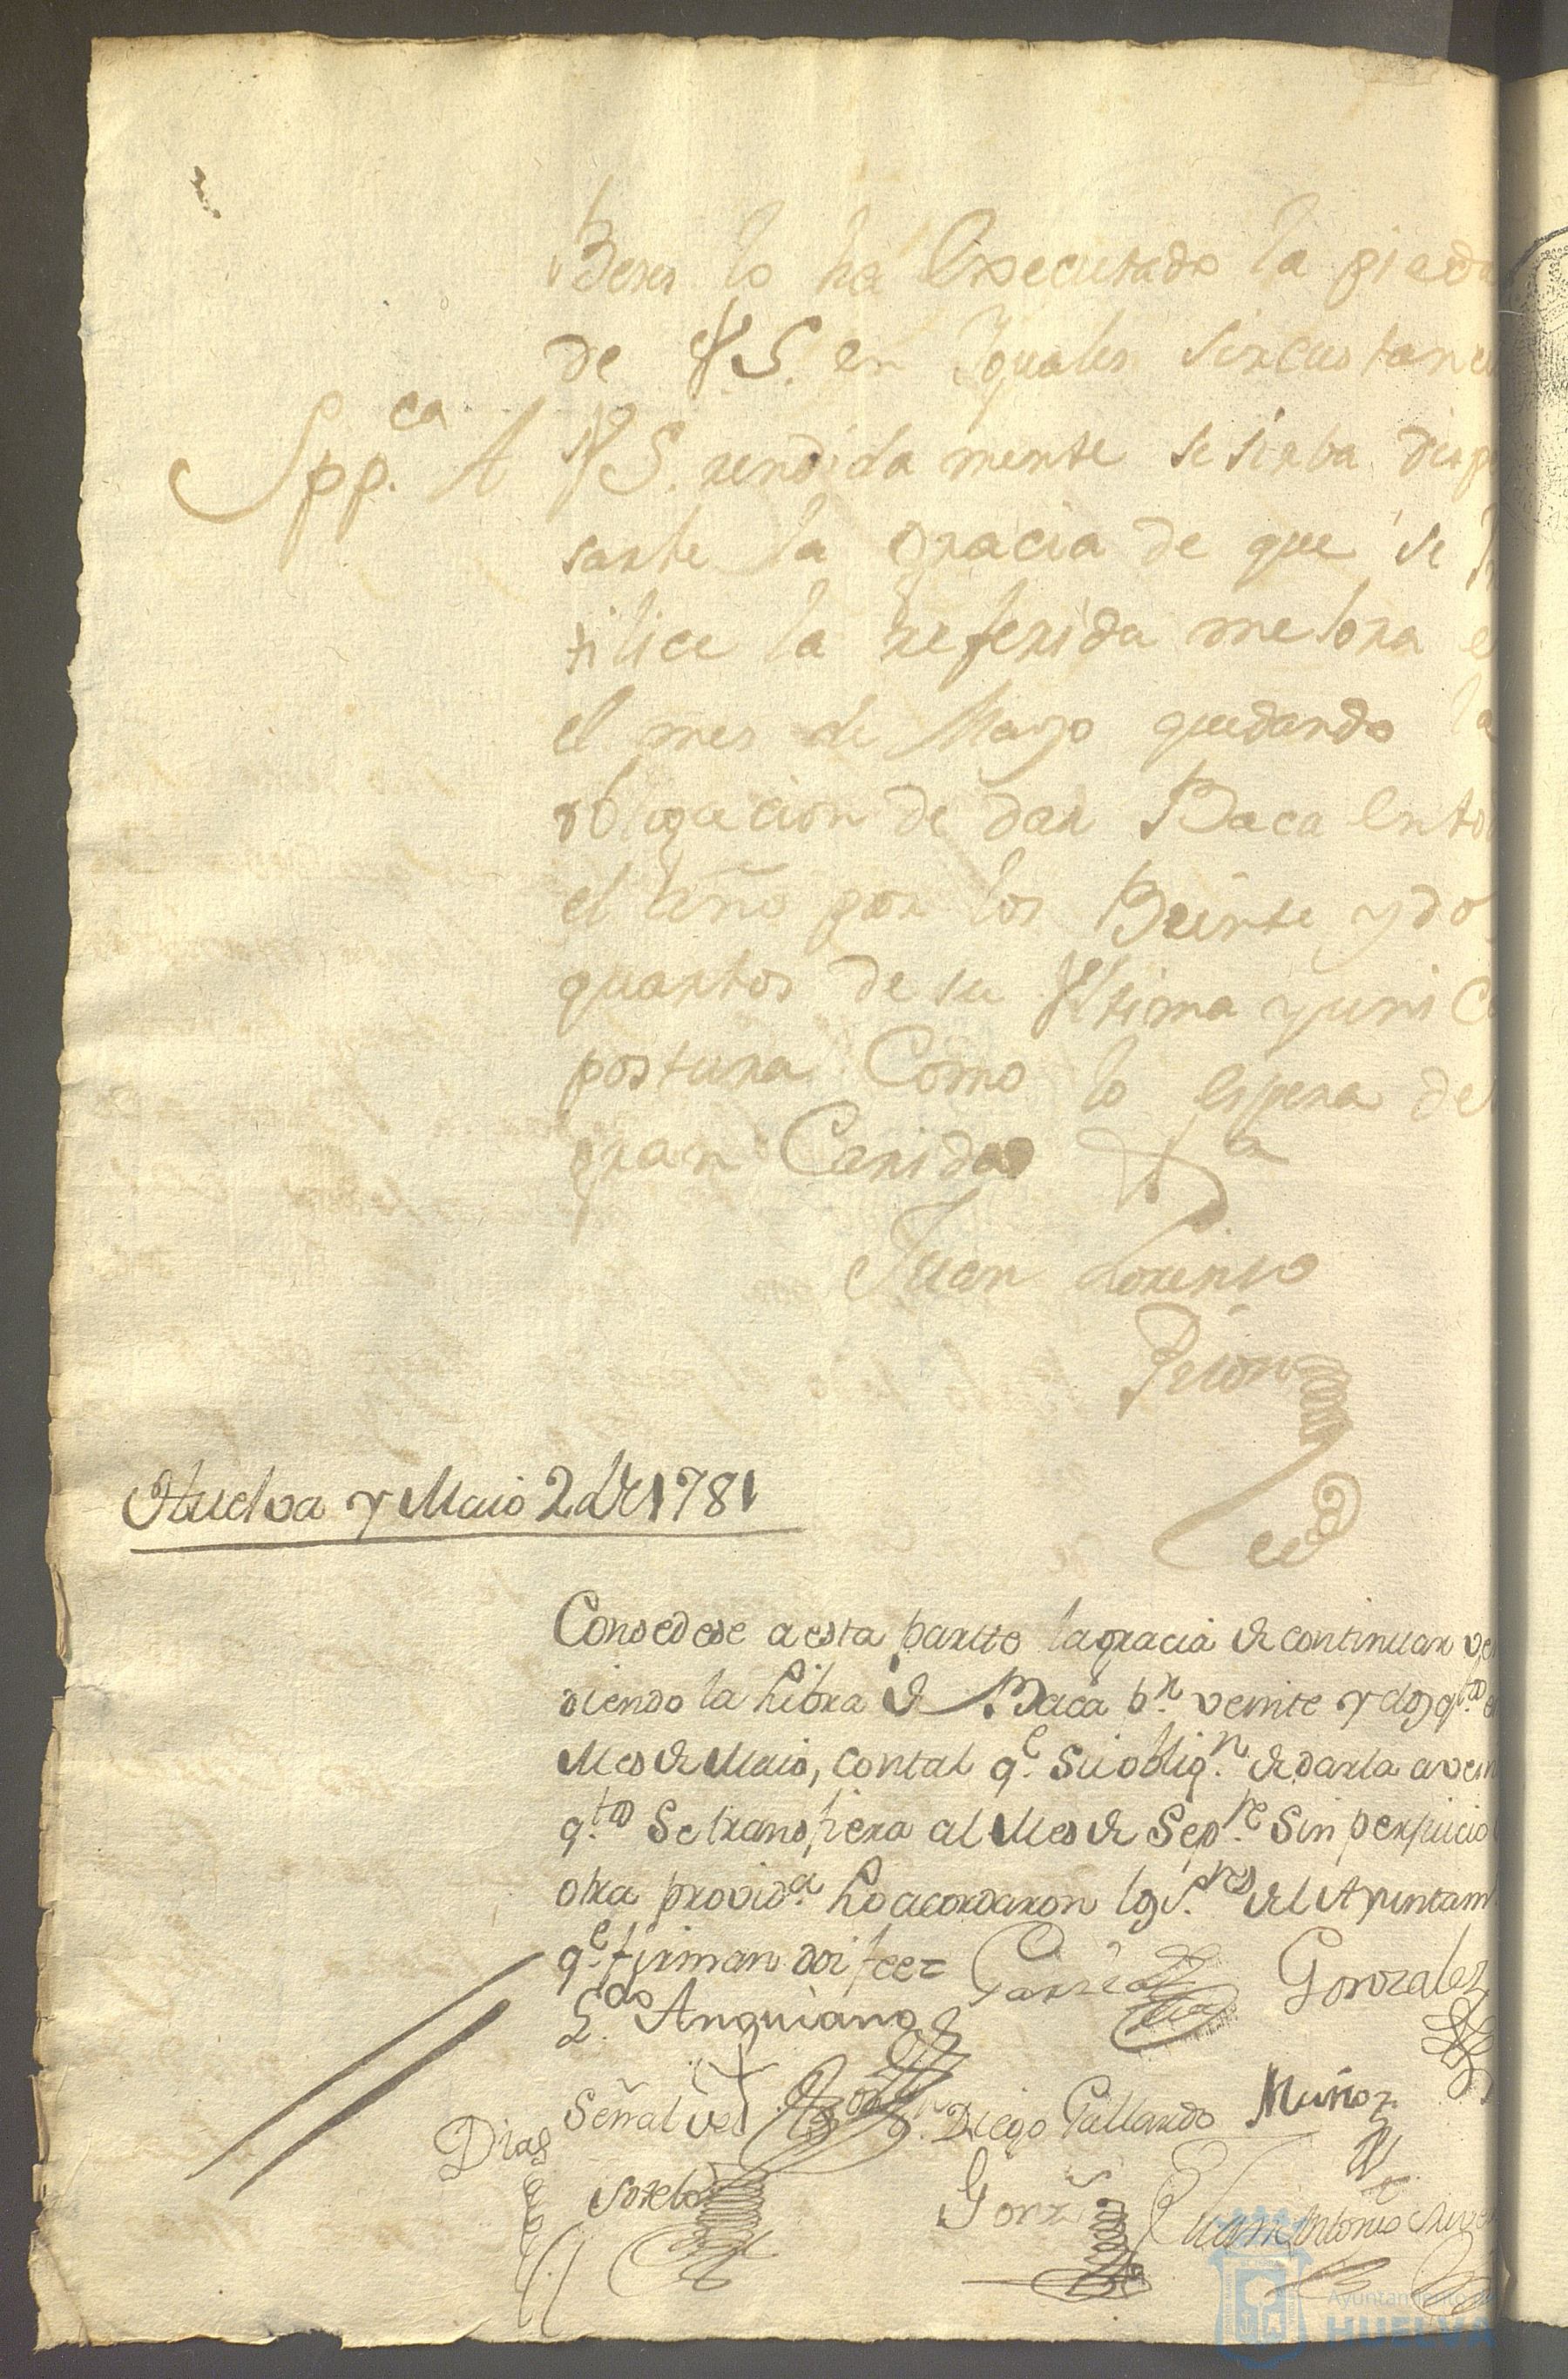 Beses lo ha Executado la pieda
de VS. en Yguales sircustanci
Spp.ca A VS. rendida mente se sirba disp
sarle la gracia de que se
tilice la referida melora e
el mes de Mayo quedando la
obligacion de dar Baca Ento
el año por los Beinte y dos
quartos de su Vltima y uni C
postura Como lo espera de
gran Caridad
Juan Lorenzo
Huelva y Maio 2 de 1781
Consedese a esta partte la gracia de continuar ve
diendo la Libra de Baca p.r veinte y dos q.tos e
Mes de Maio, con tal q.e su oblig.n de darla a vein
q.tos Se transfiera al Mes de Sep.re Sin perjuicio
otra provid.a Lo acordaron los S.res del Ayuntam
q.e firman doi fee= Garzia Gonzalez
L.do Anguiano
Señal del Diego Gallardo Muñoz
Dias
Sotelo Gonz
Juan Antonio
Ayuntamiento de
HUELVA